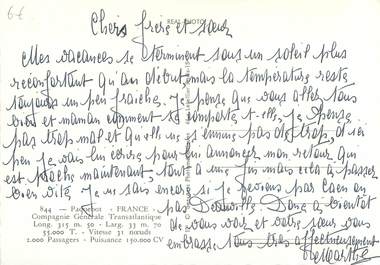 6€
REAL PHOTO
Chers frere et sœur
Mes vacances se terminent sous un soleil plus
réconfortant qu'au début mais la température reste
toujours un peu fraîche. Je pense que vous allez tous
bien et maman comment se comporte-t-elle, je pense
pas trop mal et qu'elle ne s'ennuie pas de trop, d'ici
peu je vais lui écrire pour lui annoncer mon retour qui
est proche maintenant, tout a une fin mais cela a passer
bien vite, Je ne sais encore si je reviens par Caen ou
pas Deauville Donc a bientôt
de vous voir et votre sœur vous
embrasse. Tous très affectueusement
Marthe
844 - Paquebot - FRANCE -
Compagnie Générale Transatlantique
Long. 315 m. 50 - Larg. 33 m. 70
55.000 T. - Vitesse 31 nœuds
2.000 Passagers - Puissance 150.000 CV